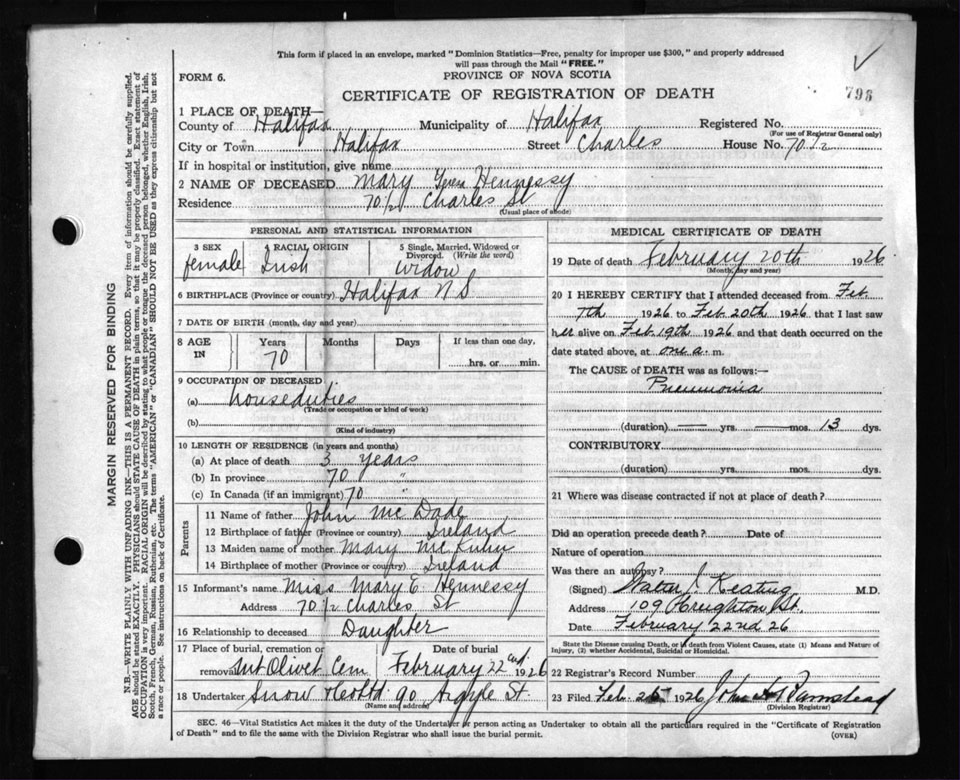 This form if placed in an envelope, marked "Dominion Statistics—Free, penalty for improper use $300," and properly addressed
will pass through the Mail "FREE."
FORM 6.
PROVINCE OF NOVA SCOTIA
798
CERTIFICATE OF REGISTRATION OF DEATH
1 PLACE OF DEATH—
County of Halifax Municipality of Halifax Registered No.
(For use of Registrar General only)
City or Town Halifax Street Charles House No. 70 1/2
If in hospital or institution, give name
2 NAME OF DECEASED Mary Teresa Hennessy
Residence 70 1/2 Charles St
(Usual place of abode)
PERSONAL AND STATISTICAL INFORMATION
3 SEX 4 RACIAL ORIGIN 5 Single, Married, Widowed or
Divorced. (Write the word)
female Irish widow
6 BIRTHPLACE (Province or country) Halifax N S
7 DATE OF BIRTH (month, day and year)
8 AGE IN Years Months Days If less than one day,
70 hrs. or min.
9 OCCUPATION OF DECEASED
(a) houseduties
(Trade or occupation or kind of work)
(b)
(Kind of industry)
10 LENGTH OF RESIDENCE (in years and months)
(a) At place of death 3 years
(b) In province 70 "
(c) In Canada (if an immigrant) 70
Parents
11 Name of father John Mc Dade
12 Birthplace of father (Province or country) Ireland
13 Maiden name of mother Mary
14 Birthplace of mother (Province or country) Ireland
15 Informant's name Miss Mary E Hennessy
Address 70 1/2 Charles St
16 Relationship to deceased Daughter
17 Place of burial, cremation or Date of burial
removal Mt Olivet Cem February 22nd 1926
18 Undertaker Snow & Co Ltd 90 Argyle St.
(Name and address)
MEDICAL CERTIFICATE OF DEATH
19 Date of death February 20th 1926
(Month, day and year)
20 I HEREBY CERTIFY that I attended deceased from Feb.
7th 1926 to Feb 20th 1926 that I last saw
her alive on Feb 19th 1926 and that death occurred on
date stated above, at one a. m.
The CAUSE of DEATH was as follows:—
Pneumonia
(duration) — yrs. — mos. 13 dys.
CONTRIBUTORY
(duration) yrs. mos. dys.
21 Where was disease contracted if not at place of death?
Did an operation precede death? Date of
Nature of operation
Was there an autopsy?
(Signed) Walter J. Keating M.D.
Address 109 Creighton St.
Date February 22nd 26
State the Disease causing Death, or in death from Violent Causes, state (1) Means and Nature of
Injury, (2) whether Accidental, Suicidal or Homicidal.
22 Registrar's Record Number
23 Filed Feb. 1926 John
(Division Registrar)
SEC. 46—Vital Statistics Act makes it the duty of the Undertaker or person acting as Undertaker to obtain all the particulars required in the "Certificate of Registration
of Death" and to file the same with the Division Registrar who shall issue the burial permit.
(OVER)
MARGIN RESERVED FOR BINDING
N.B.—WRITE PLAINLY WITH UNFADING INK—THIS IS A PERMANENT RECORD. Every item of information should be carefully supplied.
AGE should be stated EXACTLY. PHYSICIANS should STATE CAUSE OF DEATH in plain terms, so that it may be properly classified. Exact statement of
OCCUPATION is very important. RACIAL ORIGIN will be described by stating to what people or tongue the deceased person belonged, whether English, Irish,
Scotch, French, German, Russian, Ruthenian, etc. The terms "AMERICAN" or "CANADIAN" SHOULD NOT BE USED as they express citizenship but not
a race or people. See instructions on back of Certificate.